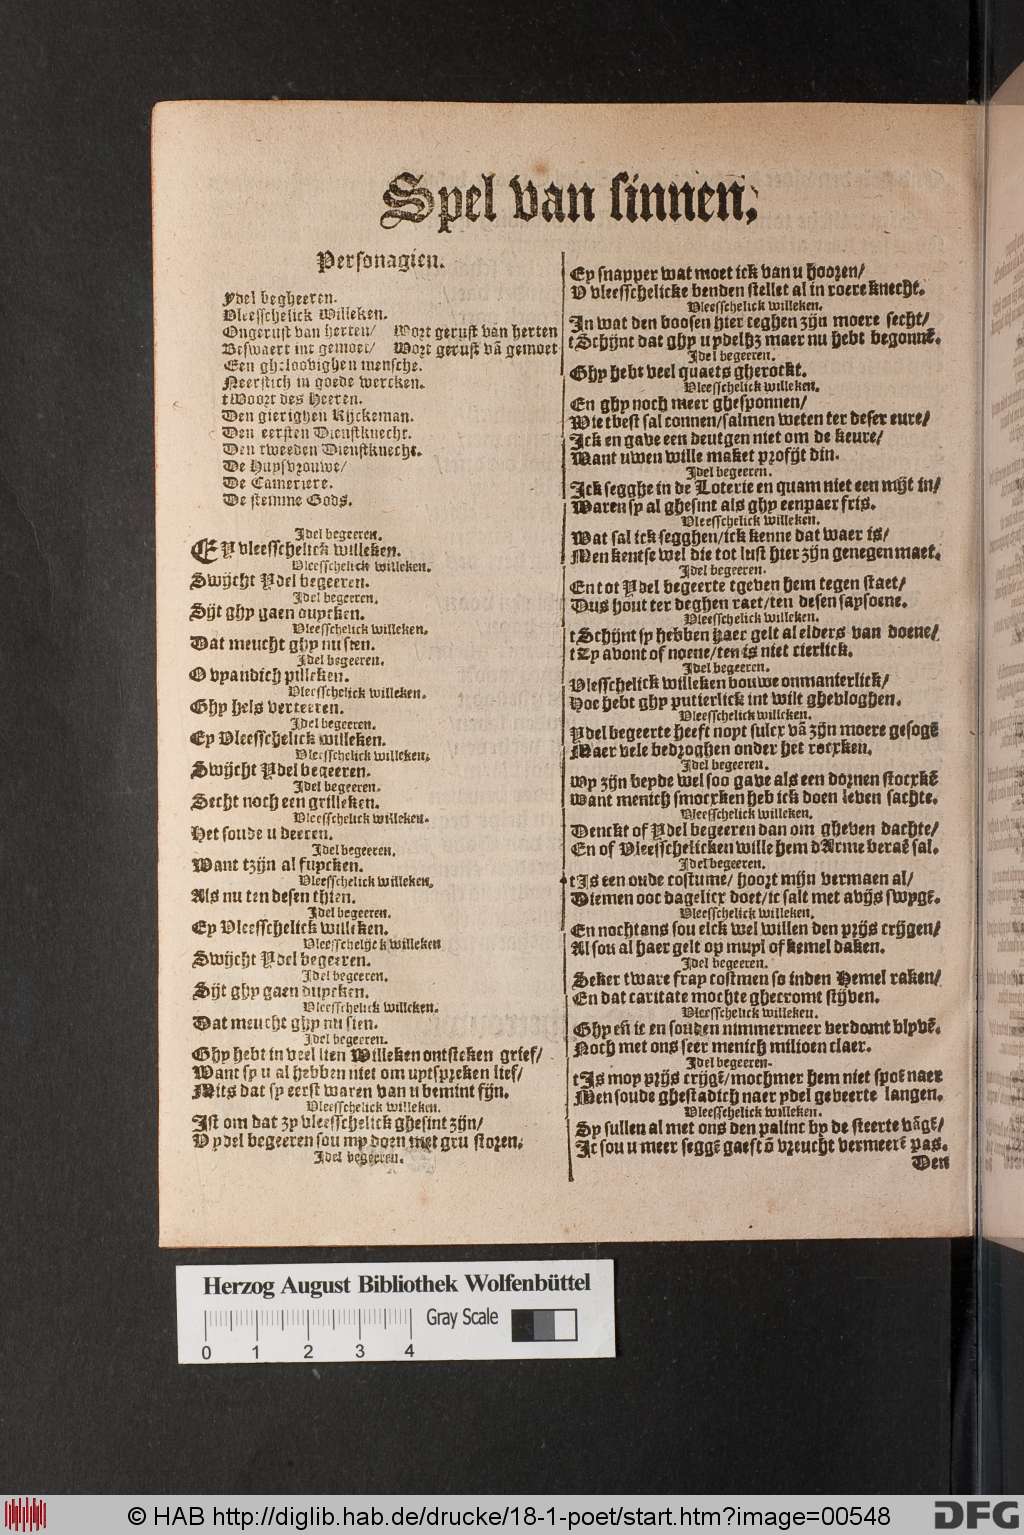 Spel van sinnen,
Personagien.
Ydel begheeren.
Vleesschelick Willeken.
Ongerust van herten/ Wort gerust van herten
Beswaert int gemoet/ Wort gerust vā gemoet
Een gheloovighen mensche.
Neerstich in goede wercken.
tWoort des Heeren.
Den gierighen Rijckeman.
Den eersten Dienstknecht.
Den tweeden Dienstknecht.
De Huysvrouwe/
De Cameriere.
De stemme Gods.
Idel begeeren.
EY vleesschelick willeken.
Vleesschelick willeken.
Swijcht Ydel begeeren.
Idel begeeren.
Sijt ghy gaen duycken.
Vleesschelick willeken.
Dat meucht ghy nu sien.
Idel begeeren.
O vyandich pilleken.
Vleesschelick willeken.
Ghy hels verteeren.
Idel begeeren.
Ey Vleesschelick willeken.
Vleesschelick willeken.
Swijcht Ydel begeeren.
Idel begeeren.
Secht noch een grilleken.
Vleesschelick willeken.
Het soude u deeren.
Idel begeeren.
Want tzijn al fuycken.
Vleesschelick willeken.
Als nu ten desen thien.
Idel begeeren.
Ey Vleesschelick willeken.
Vleesschelijck willeken
Swijcht Ydel begeeren.
Idel begeeren.
Sijt ghy gaen duycken.
Vleesschelick willeken.
Dat meucht ghy nu sien.
Idel begeeren.
Ghy hebt in veel lien Willeken ontsteken grief/
Want sy u al hebben niet om uytspreken lief/
Mits dat sy eerst waren van u bemint fijn.
Vleesschelick willeken.
Ist om dat zy vleesschelick ghesint zijn/
V ydel begeeren sou my doen met gru storen.
Idel begeeren.
Ey snapper wat moet ick van u hooren/
V vleesschelicke benden stellet al in roere knecht.
Vleesschelick willeken.
In wat den boosen hier teghen zijn moere secht/
tSchijnt dat ghy u ydelhz maer nu hebt begonnē.
Idel begeeren.
Ghy hebt veel quaets gherockt.
Vleesschelick willeken.
En ghy noch meer ghesponnen/
Wie tbest sal connen/salmen weten ter deser eure/
Ick en gave een deutgen niet om de keure/
Want uwen wille maket profijt din.
Idel begeeren.
Ick segghe in de Loterie en quam niet een mijt in/
Waren sy al ghesint als ghy eenpaer fris.
Vleesschelick willeken.
Wat sal ick segghen/ick kenne dat waer is/
Men kentse wel die tot lust hier zijn genegen maet.
Idel begeeren.
En tot Ydel begeerte tgeven hem tegen staet/
Dus hout ter deghen raet/ten desen saysoene.
Vleesschelick willeken.
tSchijnt sy hebben haer gelt al elders van doene/
tZy avont of noene/ten is niet cierlick.
Idel begeeren.
Vlesschelick willeken bouwe onmanierlick/
Hoe hebt ghy putierlick int wilt ghevloghen.
Vleesschelick willeken.
Ydel begeerte heeft noyt sulcx vā zijn moere gesogē
Maer vele bedroghen onder het rocxken.
Idel begeeren.
Wy zijn beyde wel soo gave als een dornen stocxkē
Want menich smocxken heb ick doen leven sachte.
Vleesschelick willeken.
Denckt of Ydel begeeren dan om gheven dachte/
En of Vleesschelicken wille hem dArme beraē sal.
Idel begeeren.
tIs een oude costume/ hoort mijn vermaen al/
Diemen ooc dagelicx doet/ic salt met avijs swygē.
Vleesschelick willeken.
En nochtans sou elck wel willen den prijs crijgen/
Al sou al haer gelt op muyl of kemel daken.
Idel begeeren.
Seker tware fray costmen so inden Hemel raken/
En dat caritate mochte ghecromt stijven.
Vleesschelick willeken.
Ghy eñ ic en souden nimmermeer verdomt blyvē.
Noch met ons seer menich milioen claer.
Idel begeeren.
tIs moy prijs crijgē/mochmer hem niet spoē naer
Men soude ghestadich naer ydel geveerte langen.
Vleesschelick willeken.
Sy sullen al met ons den palinc by de steerte vāgē/
Ic sou u meer seggē gaeft ō vreucht vermeerē pas.
Den
Herzog August Bibliothek Wolfenbüttel
Gray Scale
0 1 2 3 4
© HAB http://diglib.hab.de/drucke/18-1-poet/start.htm?image=00548
DFG